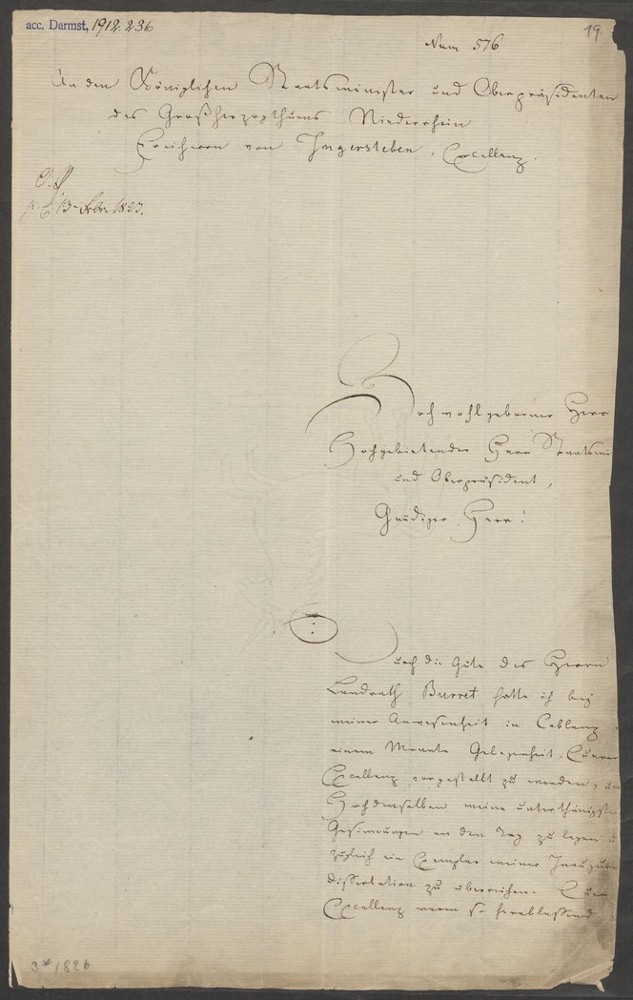 acc. Darmst. 1912.236
19
Num 576
An den Königlichen Staatsminister und Oberpräsidenten
des Großherzogthums Niederrhein
Freiherrn von Ingersleben, Excellenz.
13 Febr. 1823.
Hochwohlgeborner Herr
Hochgebietender Herr Staatsmi
und Oberpräsident,
Gnädiger Herr!
Durch die Güte des Herrn
Landrath Burret hatte ich bey
meiner Anwesenheit in Coblenz
einem Monate Gelegenheit, Eurer
Excellenz vorgestellt zu werden, u
Hochdenselben meine unterthänigste
Gesinnungen an den Tag zu legen u
zugleich ein Exemplar meiner Inaugural
dissertation zu überreichen. Eure
Excellenz waren so herablassend
3* 1826